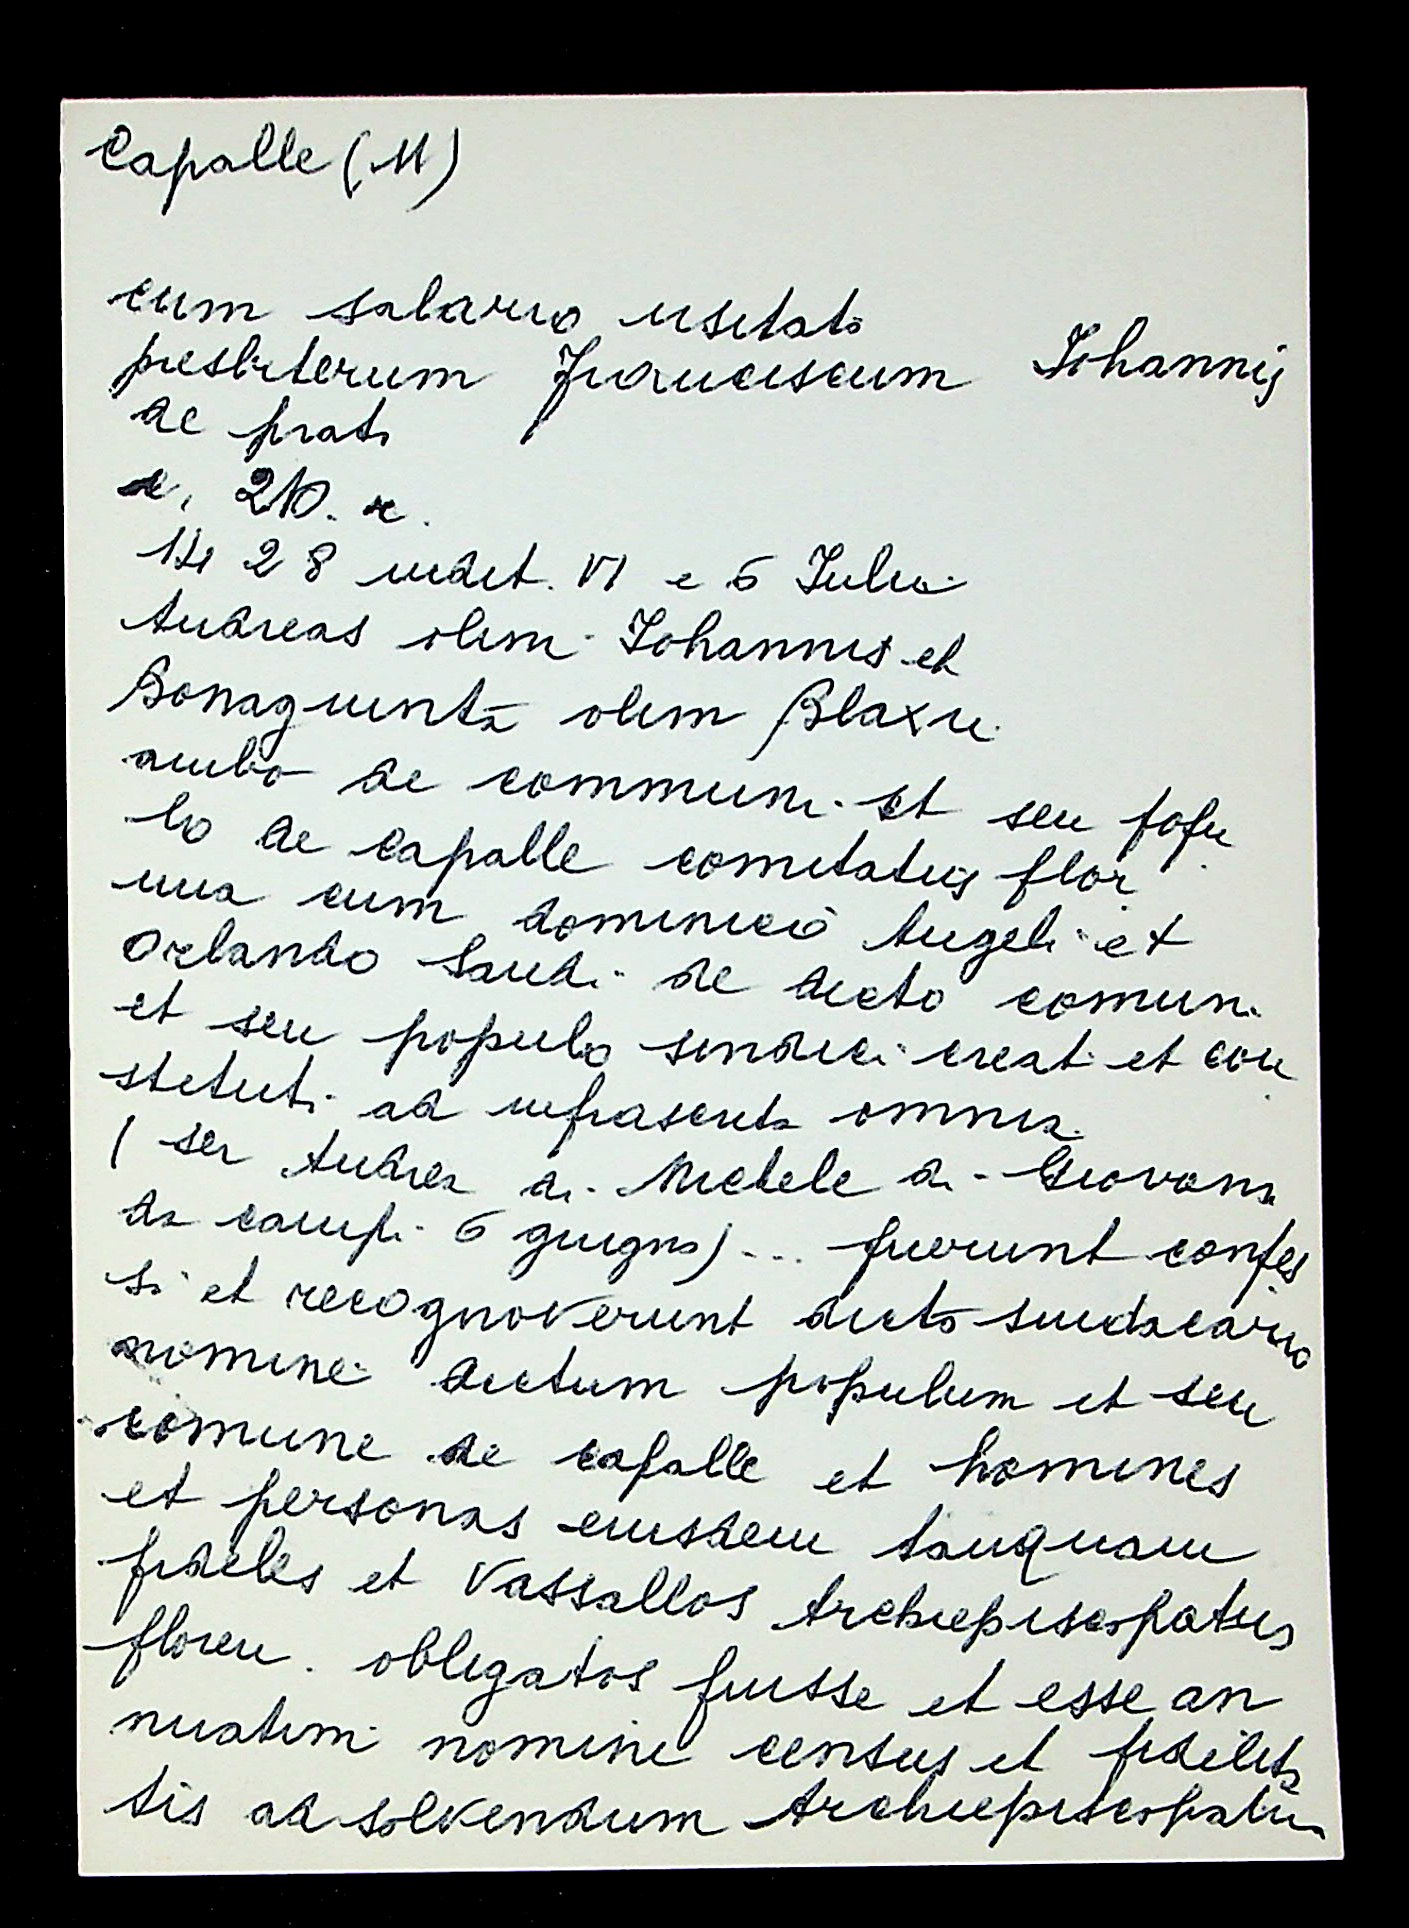 Capalle (11)
cum salario usitato
presbiterum Franciscum Johannis
de prato
c. 210. r.
1428 indict. VI e 6 Julii
Andreas olim Johannis et
Bonagiunta olim Blaxii
ambo de communi et seu popu
lo de Capalle comitatus flor.
una cum dominico Angeli et
Orlando Sandi de dicto comuni
et seu populo sindici creati et con
stituti ad infrascripta omnia
(ser Andrea di Michele di Giovanni
da campi 6 giugno) ... fuerunt confes
si et recognoverunt dicto sindacario
nomine dictum populum et seu
comune de capalle et homines
et personas eiusdem tanquam
fideles et vassallos Archiepiscopatus
floren. obligatos fuisse et esse an
nuatim nomine census et fidelita
tis ad solvendum Archiepiscopatui